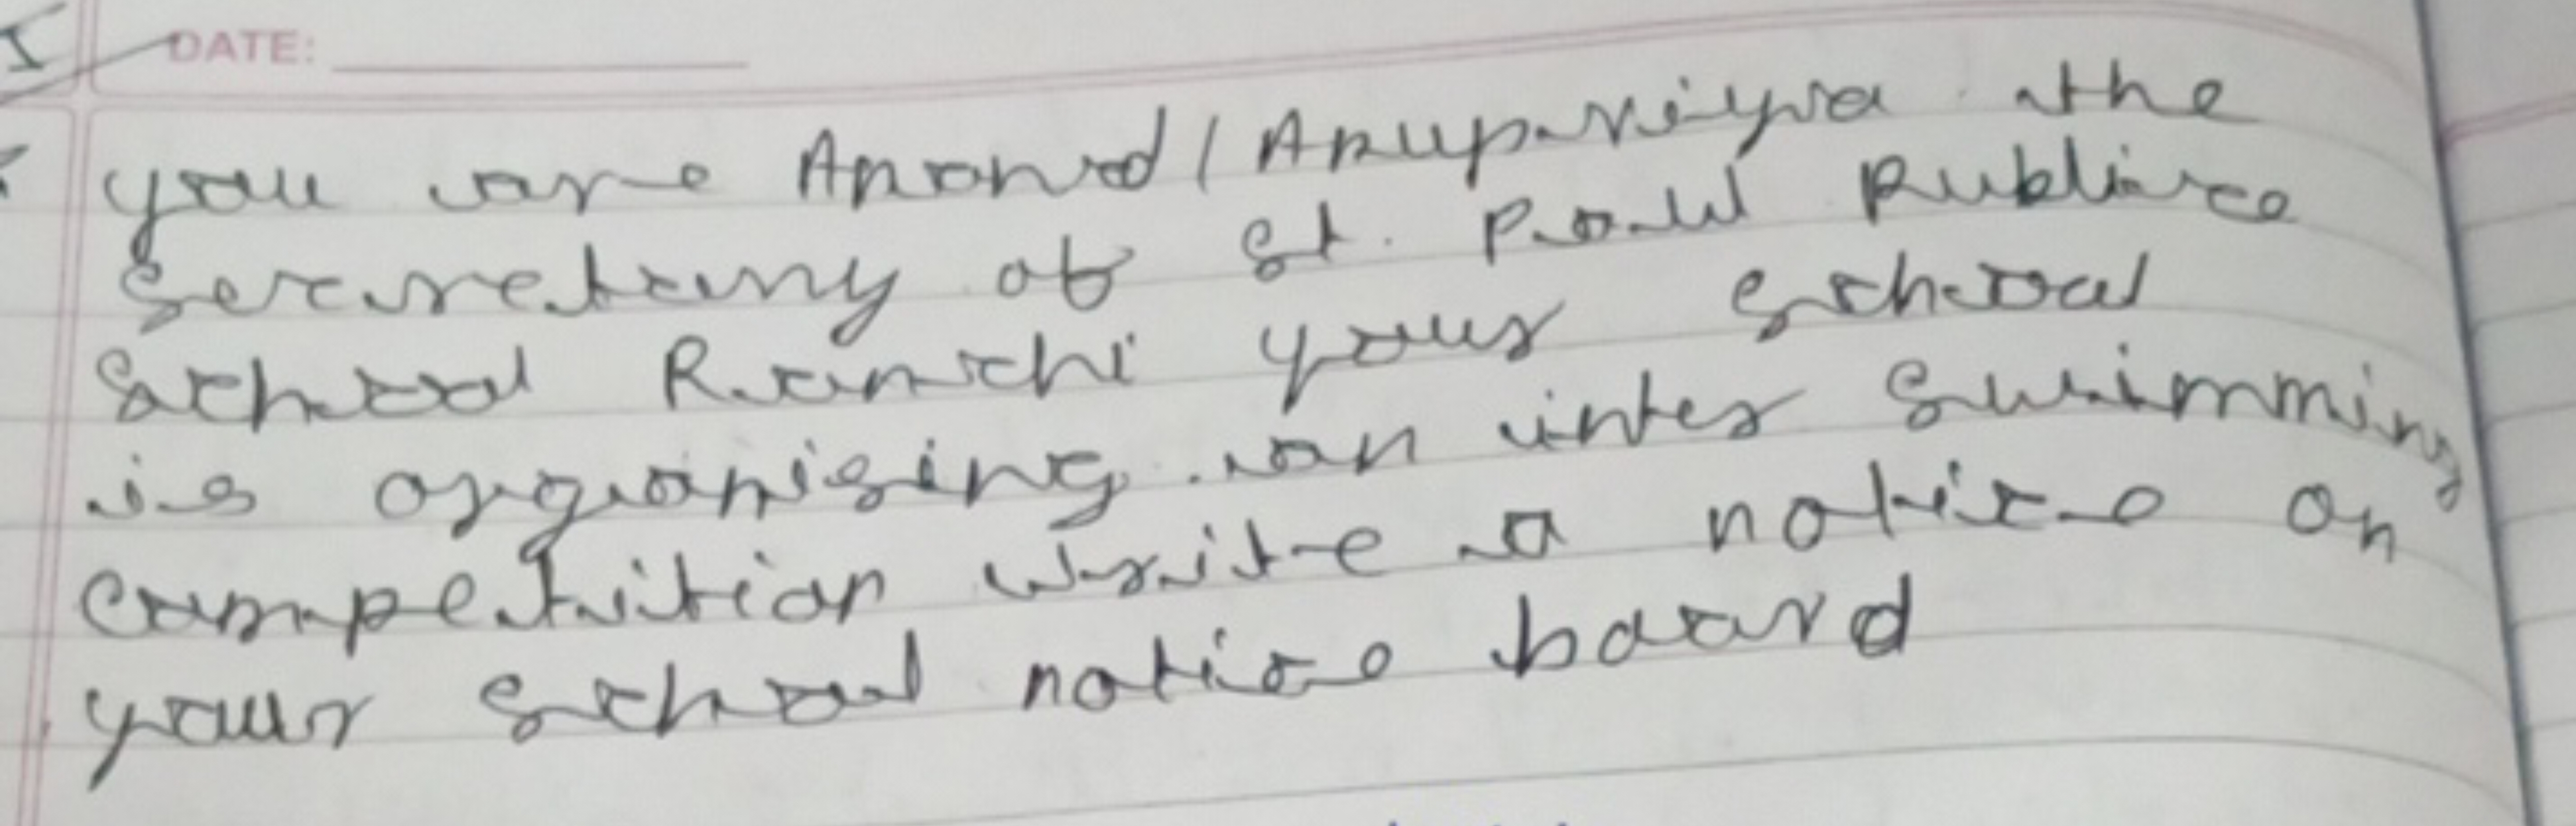 DATE:
you are Anand / Anupriya the
Secretary of St. Paul Public
School Ranchi your school
is organising an inter swimming
competition write a notice on
your school notice board